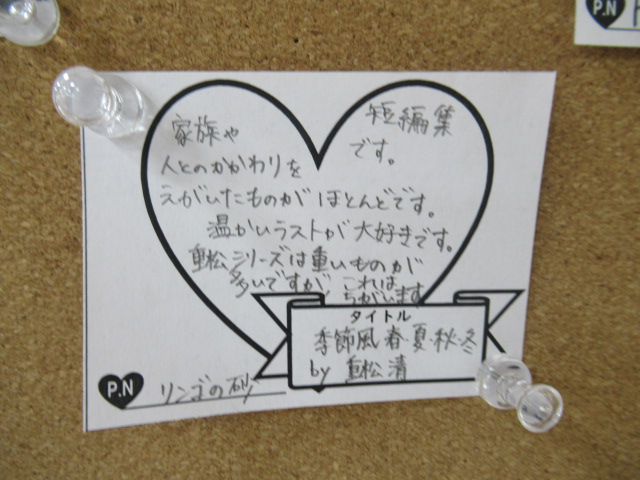 短編集
です。
家族や
人とのかかわりを
えがいたものがほとんどです。
温かいラストが大好きです。
重松シリーズは重いものが
多いですが、これは
ちがいます
タイトル
季節風 春・夏・秋・冬
by 重松清
P.N リンゴの砂
P.N